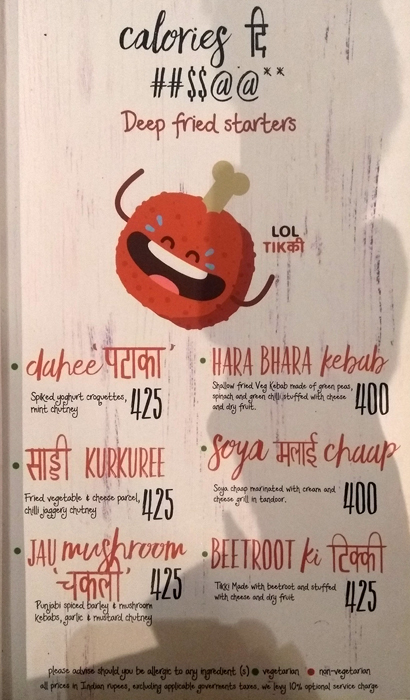 calories दि
##$$@@**
Deep fried starters
LOL
TIKकी
dahee 'पटाका'
Spiced yoghurt croquettes,
mint chutney
425
HARA BHARA kebab
Shallow fried Veg Kebab made of green peas,
spinach and green chilli stuffed with cheese
and dry fruit.
400
साड्डी KURKUREE
Fried vegetable & cheese parcel,
chilli jaggery chutney
425
Soya मलाई chaap
Soya chaap marinated with cream and
cheese grill in tandoor.
400
JAU mushroom
'चकली'
425
Punjabi spiced barley & mushroom
kebabs, garlic & mustard chutney
BEETROOT ki टिक्की
Tikki Made with beetroot and stuffed
with cheese and dry fruit
425
please advise should you be allergic to any ingredient (s) vegetarian non-vegetarian
all prices in Indian rupees, excluding applicable governments taxes, we levy 10% optional service charge